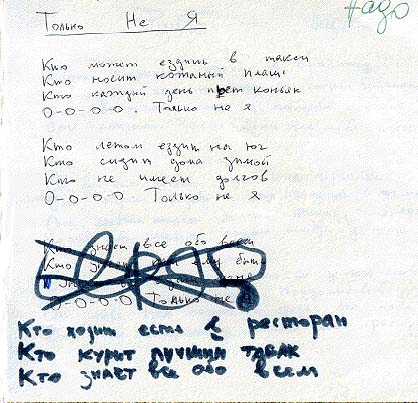 надо
Только Не Я
Кто может ездить в такси
Кто носит кожаный плащ
Кто каждый день пьет коньяк
О-О-О-О. Только не я
Кто летом ездит на юг
Кто сидит дома зимой
Кто не имеет долгов
О-О-О-О Только не я
Кто знает все обо всем
Кто быть
О-О-О-О Только не я
Кто ходит есть в ресторан
Кто курит лучший табак
Кто знает все обо всем